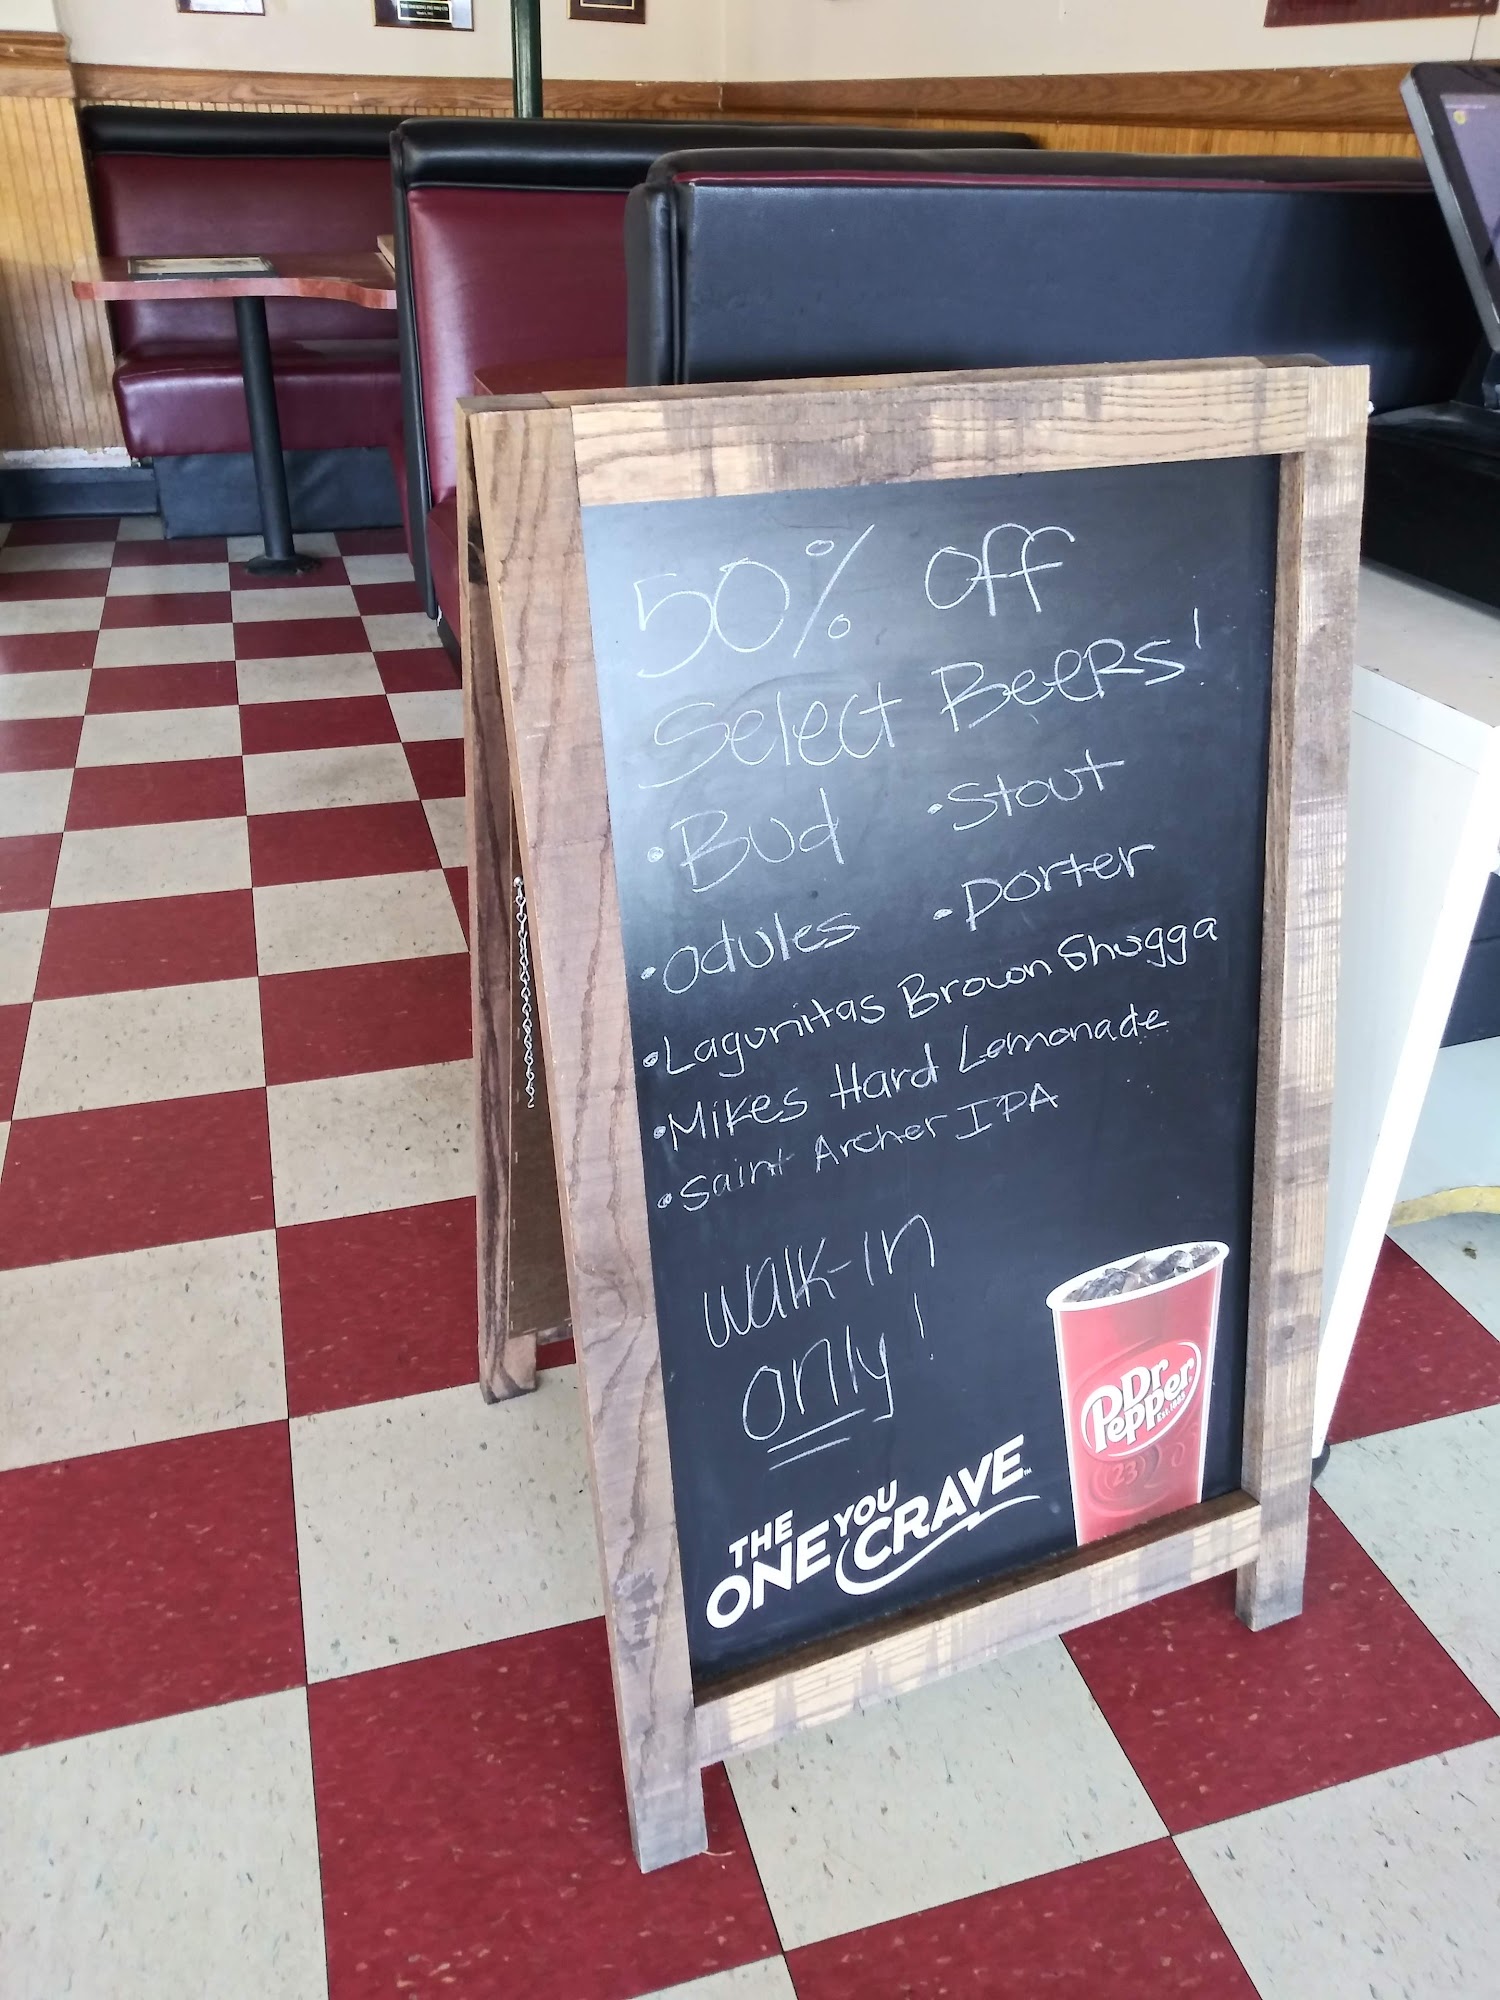 50% off
Select Beers!
• Bud • Stout
• odules • porter
• Lagunitas Brown Shugga
• Mikes Hard Lemonade
• Saint Archer IPA
walk-in
only!
THE
ONE YOU
CRAVE™
Dr
Pepper
EST. 1885
23